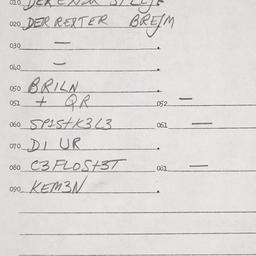 020 DER REATER BREJM
030 —
040 —
050 BRILN
051 + QR 052 —
060 SP1S+K3L3 061 —
070 DI UR
080 C3FLOS+3T 081 —
090 KEM3N